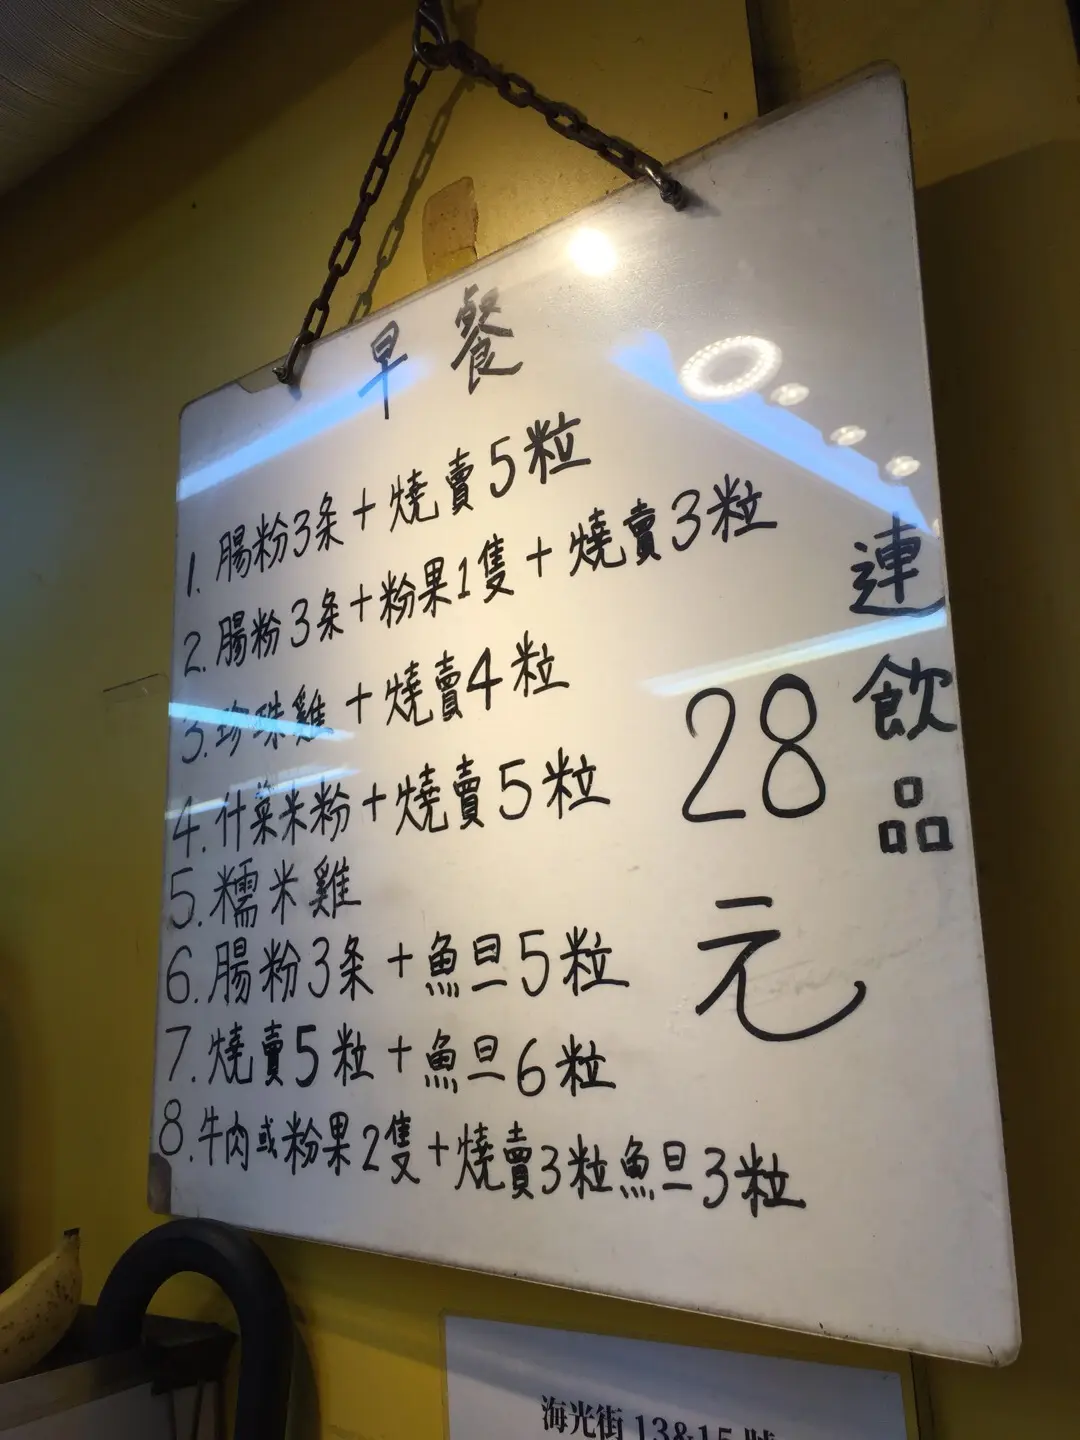 早餐
1. 腸粉3条+燒賣5粒
2. 腸粉3条+粉果1隻+燒賣3粒
3. 珍珠雞+燒賣4粒
4. 什菜米粉+燒賣5粒
5. 糯米雞
6. 腸粉3条+魚旦5粒
7. 燒賣5粒+魚旦6粒
8. 牛肉或粉果2隻+燒賣3粒魚旦3粒
28元
連飲品
海光街 13&15 號